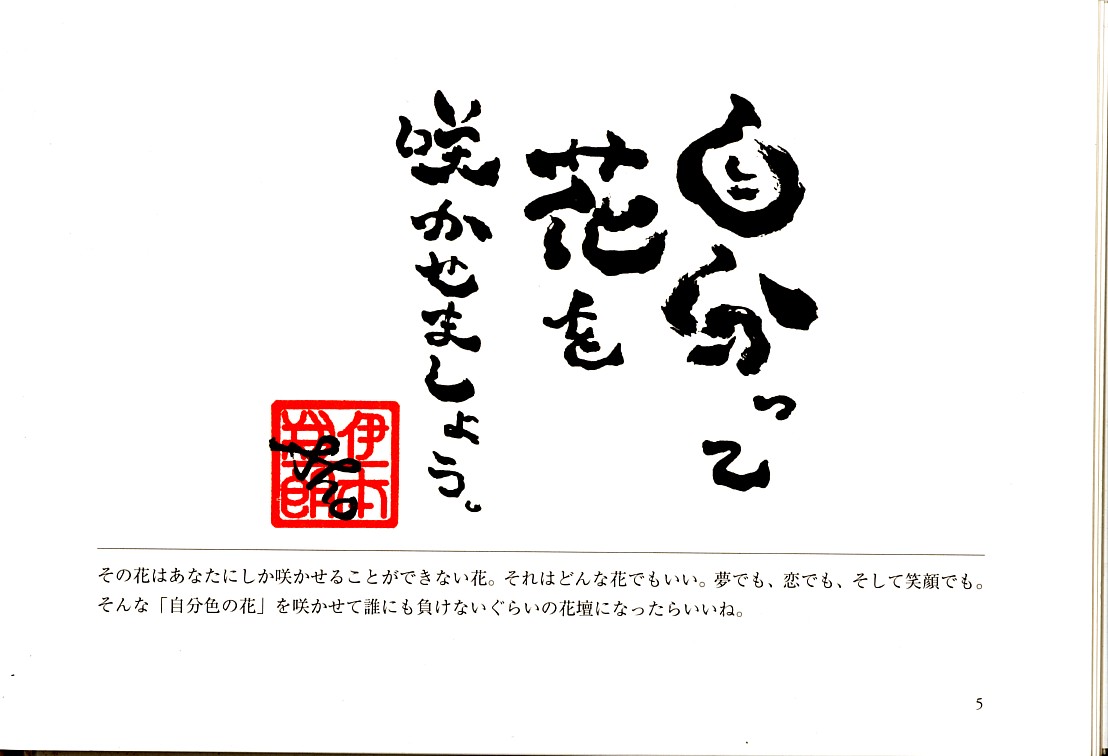 自分って
花を
咲かせましょう。
その花はあなたにしか咲かせることができない花。それはどんな花でもいい。夢でも、恋でも、そして笑顔でも。
そんな「自分色の花」を咲かせて誰にも負けないぐらいの花壇になったらいいね。
5